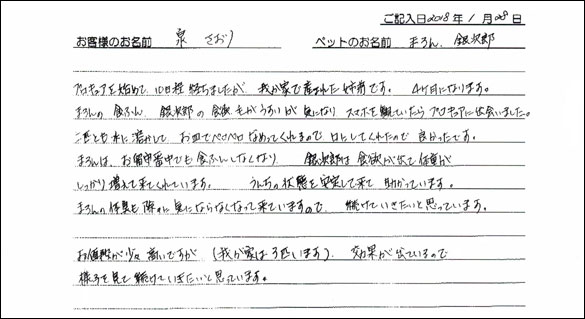 ご記入日2018年1月28日
お客様のお名前 泉 さおり ペットのお名前 まろん、銀次郎
プロキュアを始めて、10日程経ちましたが 我が家で産まれた姉弟です。 4ヶ月になります。
まろんの食ふん、銀次郎の食欲もがうすいが気になり スマホを観ていたらプロキュアに出会いました。
二匹とも水に溶かして、お皿でペロペロなめってくれるので 口にしてくれたので 良かったです。
まろんは、お留守番中でも食ふんしなくなり 銀次郎は食欲が出て体重が
しっかり増えて来てくれています。 うんちの状態も安定して来て 助かっています。
まろんの体臭も際々に気にならなくなって来ていますので、 続けていきたいと思っています。
お値段が少々高いですが (我が家は3匹います) 効果が出ているので
様子を見て続けていきたいと思っています。